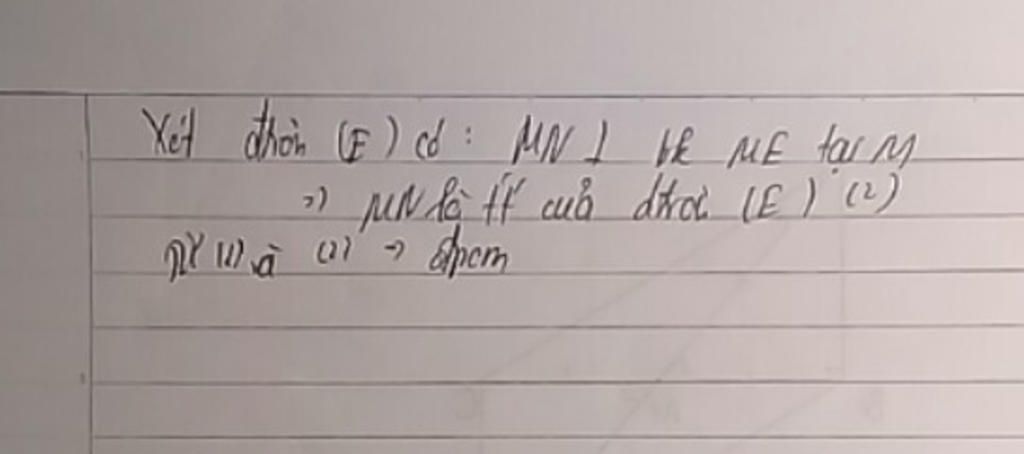 Xét đtròn (E) có: MN ⊥ bk ME tại M
=> MN là tt của đtròn (E) (2)
Từ (1) và (2) => đpcm